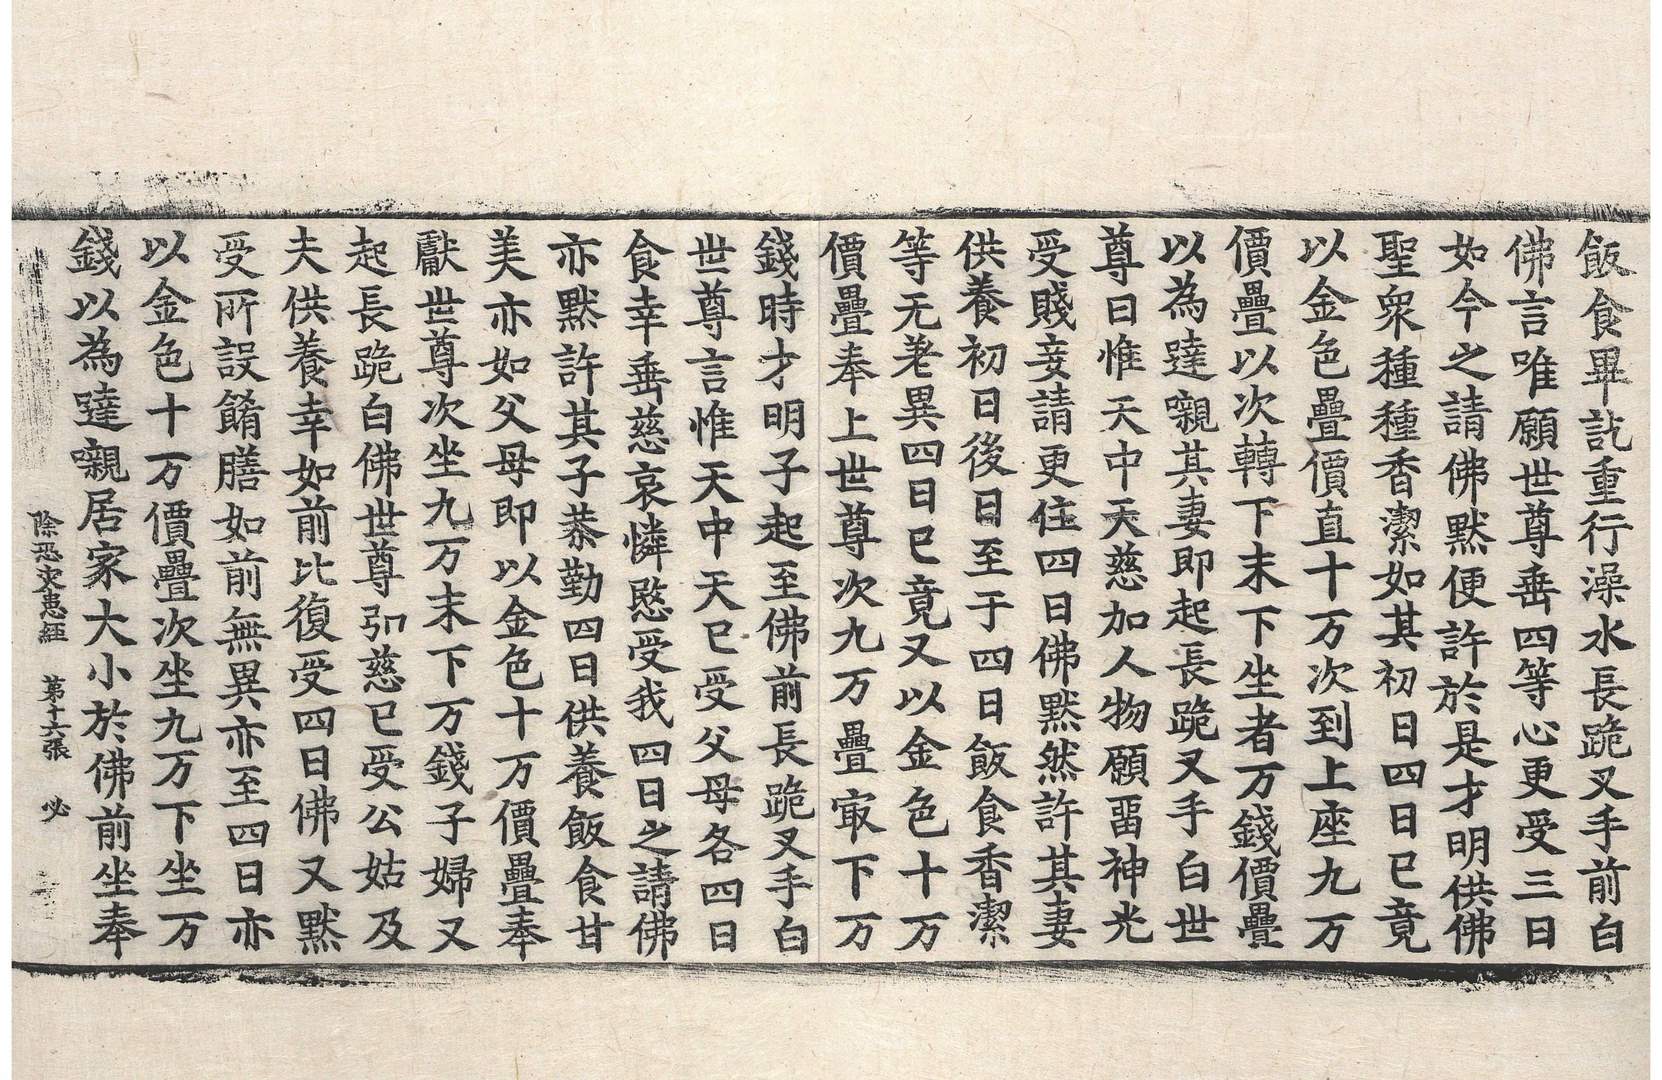 飯食畢訖重行澡水長跪叉手前白
佛言唯願世尊垂四等心更受三日
如今之請佛默便許於是才明供佛
聖衆種種香潔如其初日四日已竟
以金色疊價直十万次到上座九万
價疊以次轉下末下坐者万錢價疊
以為達嚫其妻即起長跪叉手白世
尊曰惟天中天慈加人物願畱神光
受賤妾請更住四日佛默然許其妻
供養初日後日至于四日飯食香潔
等无差異四日已竟又以金色十万
價疊奉上世尊次九万疊㝡下万
錢時才明子起至佛前長跪叉手白
世尊言惟天中天已受父母各四日
食幸垂慈哀憐愍受我四日之請佛
亦默許其子恭勤四日供養飯食甘
美亦如父母即以金色十万價疊奉
獻世尊次坐九万末下万錢子婦又
起長跪白佛世尊弘慈已受公姑及
夫供養幸如前比復受四日佛又默
受所設餚膳如前無異亦至四日亦
以金色十万價疊次坐九万下坐万
錢以為達嚫居家大小於佛前坐奉
除恐灾患經　第十六張　必